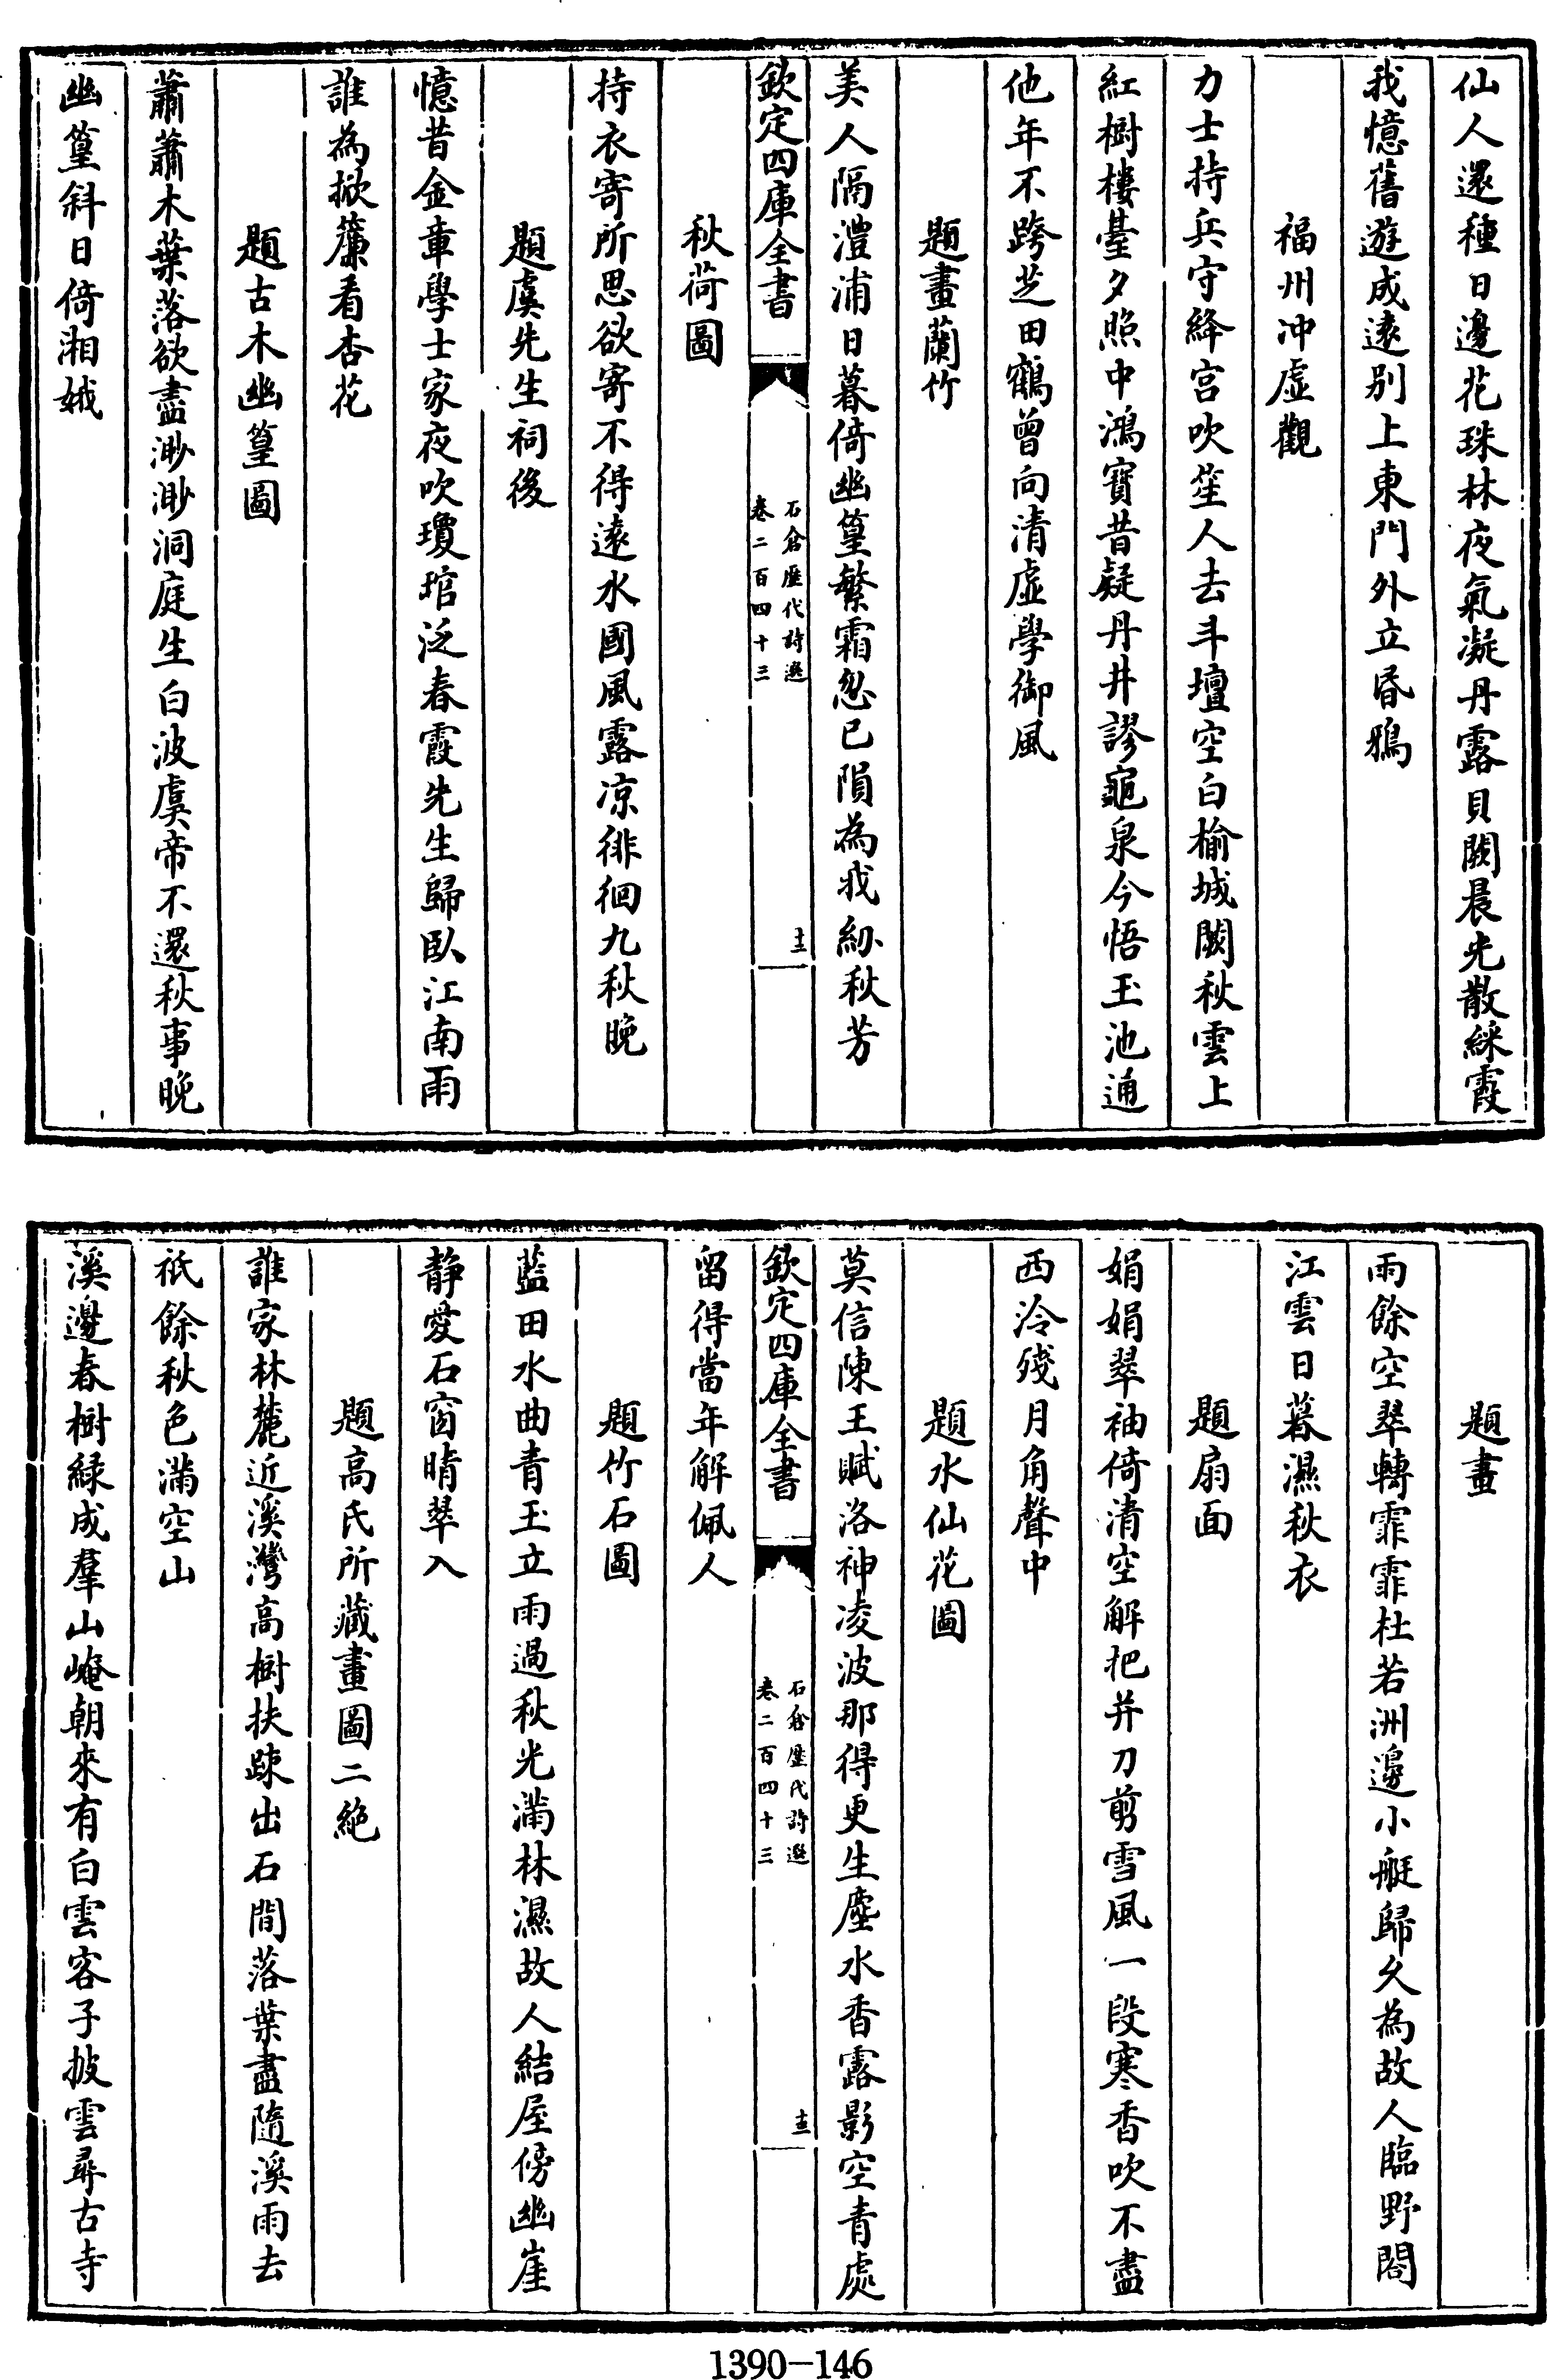 仙人還種日邊花珠林夜氣凝丹露貝闕晨光散綵霞
我憶舊遊成遠别上東門外立昏鴉
福州冲虛觀
力士持兵守絳宫吹笙人去斗壇空白榆城闕秋雲上
紅樹樓臺夕照中鴻寶昔疑丹井謬龜泉今悟玉池通
他年不跨芝田鶴曾向清虛學御風
題畫蘭竹
美人隔澧浦日暮倚幽篁繁霜忽已隕為我紉秋芳
欽定四庫全書
石倉歷代詩選
卷二百四十三
十二
秋荷圖
持衣寄所思欲寄不得遠水國風露凉徘徊九秋晚
題虞先生祠後
憶昔金章學士家夜吹瓊琯泛春霞先生歸臥江南雨
誰為掀簾看杏花
題古木幽篁圖
蕭蕭木葉落欲盡渺渺洞庭生白波虞帝不還秋事晚
幽篁斜日倚湘娥
題畫
雨餘空翠轉霏霏杜若洲邊小艇歸久為故人臨野閣
江雲日暮濕秋衣
題扇面
娟娟翠袖倚清空解把并刀剪雪風一段寒香吹不盡
西泠殘月角聲中
題水仙花圖
莫信陳王賦洛神凌波那得更生塵水香露影空青處
欽定四庫全書
石倉歷代詩選
卷二百四十三
十三
留得當年解佩人
題竹石圖
藍田水曲青玉立雨過秋光滿林濕故人結屋傍幽崖
静愛石窗晴翠入
題高氏所藏畫圖二絶
誰家林麓近溪灣高樹扶疎出石間落葉盡隨溪雨去
祇餘秋色滿空山
溪邊春樹緑成羣山崦朝來有白雲客子披雲尋古寺
1390-146